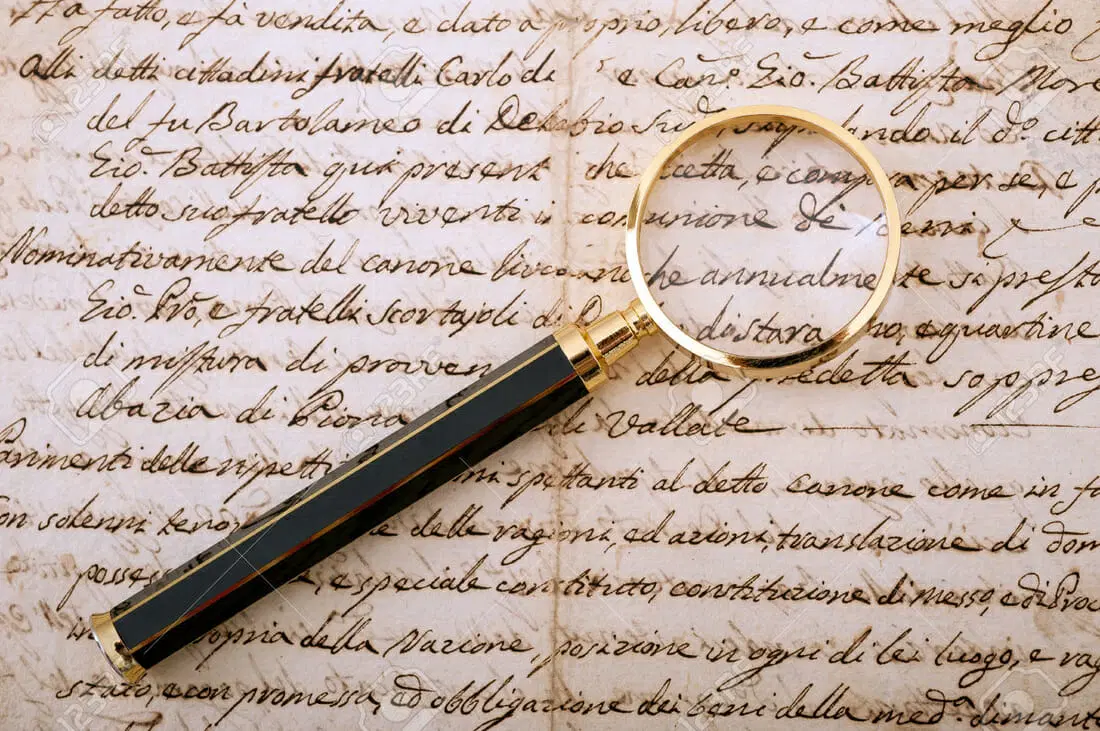 Ha fatto, e fà vendita, e dato a proprio, libero, e come meglio
Alli detti cittadini fratelli Carlo e Can.º Gio. Battista More
del fu Bartolameo di il d.º citt
Gio. Battista qui present che accetta, e compra per se, e p
detto suo fratello viventi in comunione di beni e
Nominativamente del canone annualmente si presta
Gio. Pro, e fratelli Scortajoli di stara no, e quartine
di mistura di proven della predetta soppre
Abazia di Piona di Vallate
Parimenti delle ripetti spettanti al detto canone come in fa
con solenni delle ragioni, ed azioni, translazione di dom
possess e speciale constituto, constituzione di messo, e di Proc
propria della Nazione, posizione in ogni di lei luogo, e rag
stato, e con promessa, ed obbligazione dei beni della med.ª dimant